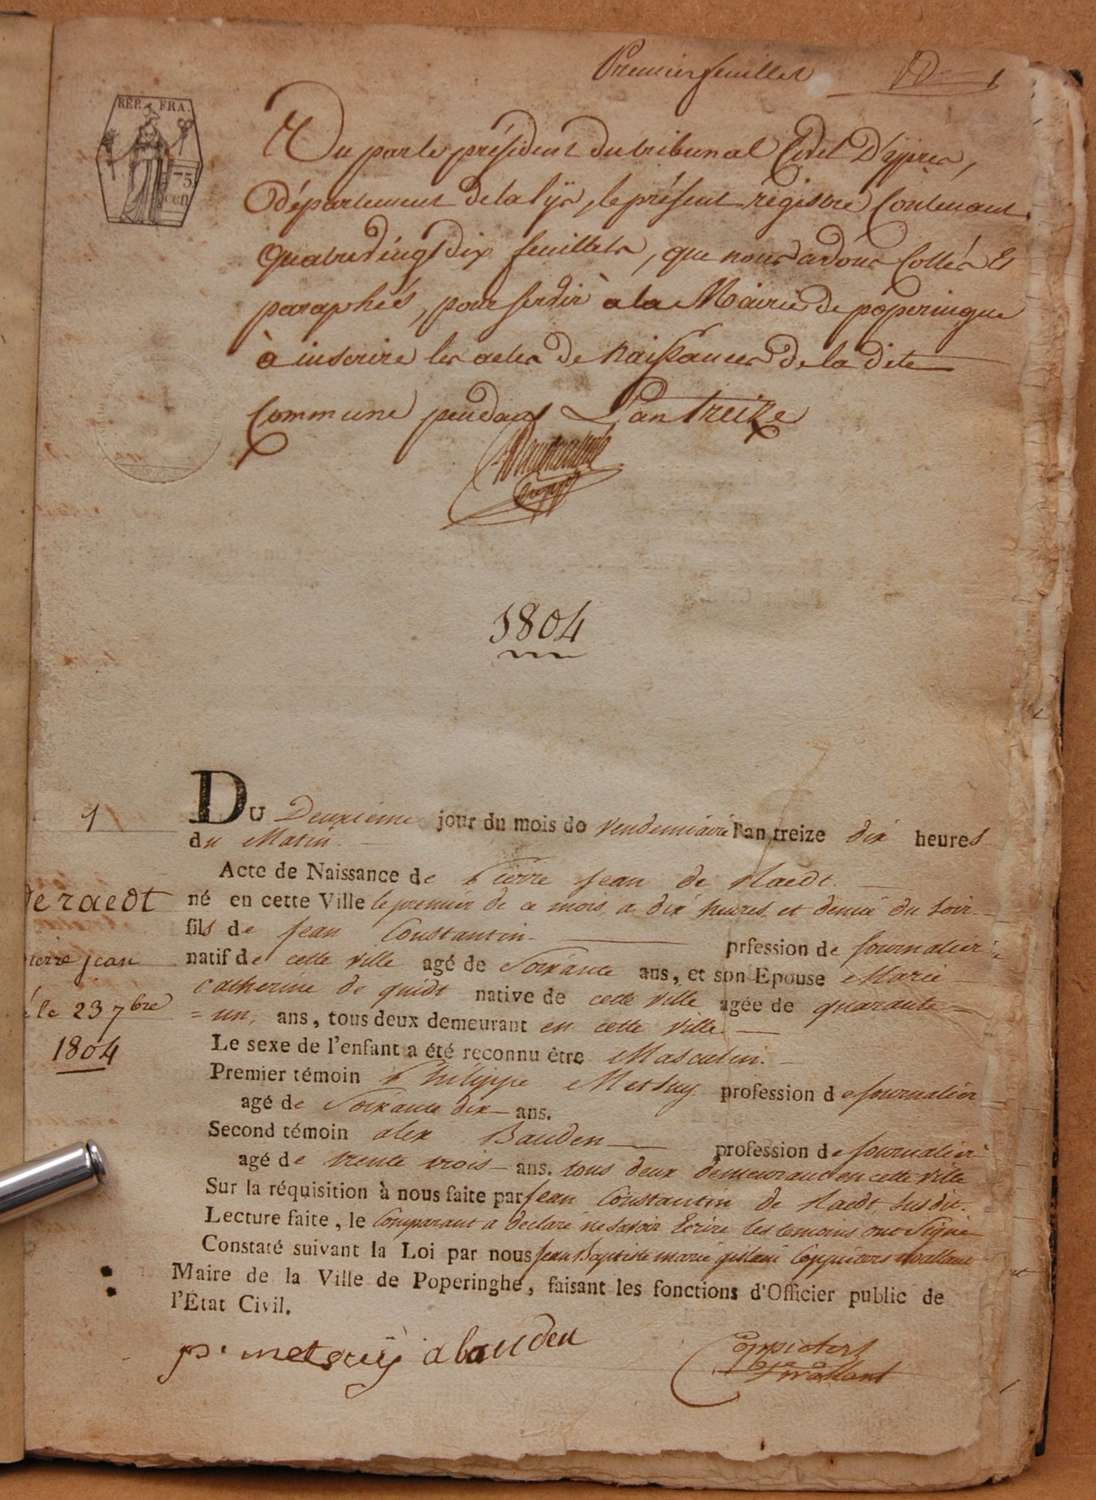 Premier feuillet 1
REP. FRA.
75
CEN
Vu par le président du tribunal Civil D'ypres,
Département de la lÿs, le présent registre Contenant
quatre vingt dix feuillets, que nous avons Cottés Et
paraphés, pour servir à la Mairie de poperingue
à inscrire les actes de Naissances de la dite
Commune pendant L'an treize
1804
1
DU Deuxieme jour du mois de Vendemiaire l'an treize dix heures
du Matin.
Acte de Naissance de Pierre Jean de Raedt.
né en cette Ville le premier de ce mois, a dix heures et demie du soir
fils de Jean Constantin prfession de journalier
natif de cette ville agé de Soixante ans, et son Epouse Marie
Catherine de quidt native de cette ville agée de quarante=
=un, ans, tous deux demeurant en cette ville.
Le sexe de l'enfant a été reconnu être Masculin.
Premier témoin Philippe profession de journalier
agé de Soixante dix ans.
Second témoin alex Bauden profession de journalier
agé de trente trois ans. tous deux demeurant en cette ville
Sur la réquisition à nous faite par Jean Constantin de Raedt susdit.
Lecture faite, le Comparant a declaré ne savoir Ecrire les temoins ont Signé
Constaté suivant la Loi par nous Jean Baptiste marie gislain
Maire de la Ville de Poperinghe, faisant les fonctions d'Officier public de
l'Etat Civil.
Deraedt
pierre jean
é le 23 7bre
1804
a bauden